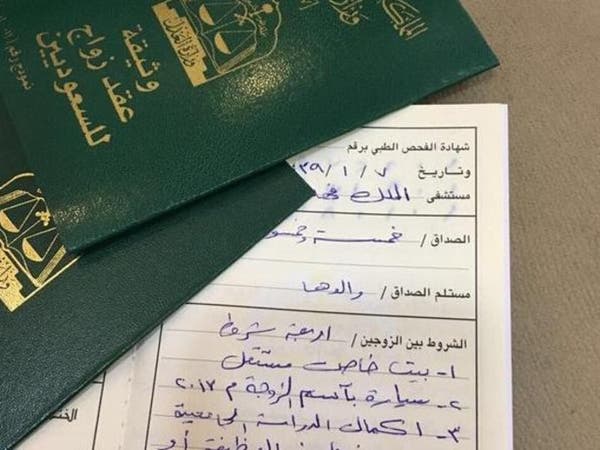 وزارة العدل
وثيقة
عقد زواج
للسعوديين
شهادة الفحص الطبي برقم
وتاريخ ٧ / ١ / ٣٩
مستشفى الملك
الصداق / خمسة
مستلم الصداق / والدها
الشروط بين الزوجين / اربعة شروط
١- بيت خاص مستقل
٢- سيارة باسم الزوجة م ٢٠١٧
٣- اكمال الدراسة الجامعية